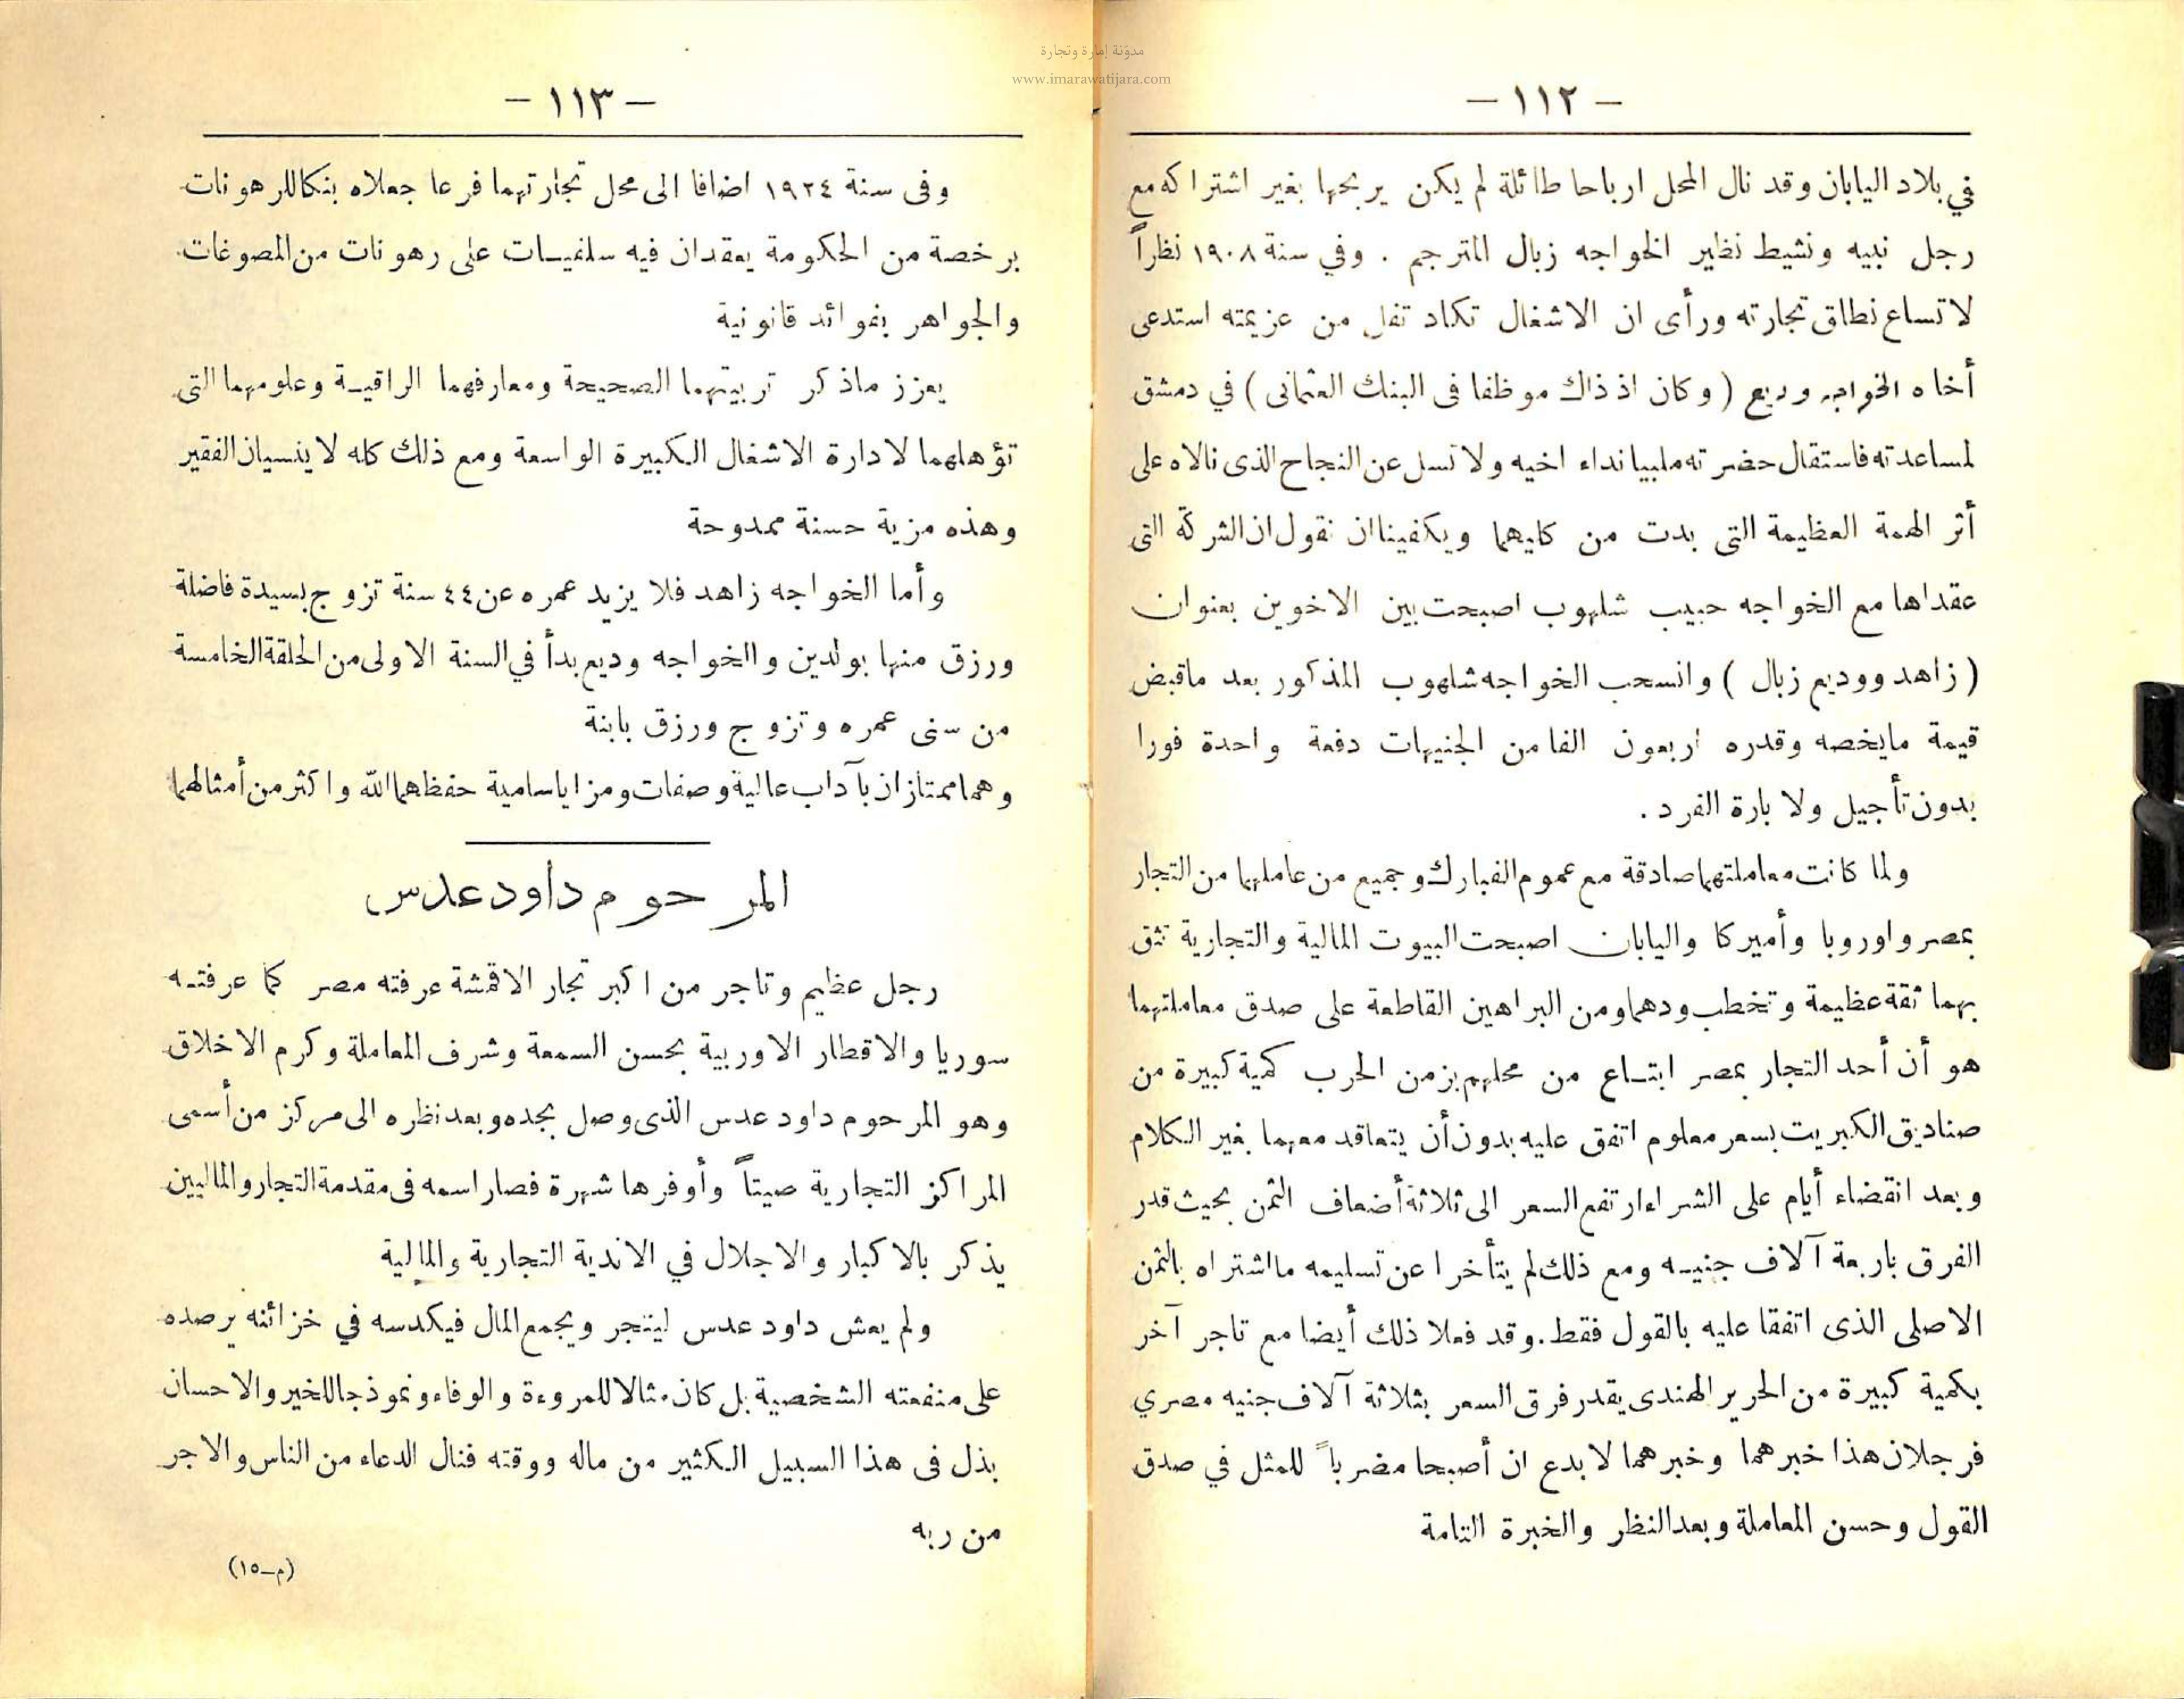 مدوّنة إمارة وتجارة
www.imarawatijara.com
— ١١٢ —
في بلاد اليابان وقد نال المحل ارباحا طائلة لم يكن يربحها بغير اشتراكه مع
رجل نبيه ونشيط نظير الخواجه زبال المترجم . وفي سنة ١٩٠٨ نظراً
لاتساع نطاق تجارته ورأى ان الاشغال تكاد تفل من عزيمته استدعى
أخاه الخواجه وديع ( وكان اذ ذاك موظفا فى البنك العثمانى ) في دمشق
لمساعدته فاستقال حضرته ملبيا نداء اخيه ولا تسل عن النجاح الذى نالاه على
أثر الهمة العظيمة التى بدت من كليهما ويكفينا ان نقول ان الشركة التى
عقداها مع الخواجه حبيب شلهوب اصبحت بين الاخوين بعنوان
( زاهد ووديع زبال ) وانسحب الخواجه شلهوب المذكور بعد ماقبض
قيمة مايخصه وقدره اربعون الفا من الجنيهات دفعة واحدة فورا
بدون تأجيل ولا بارة الفرد .
ولما كانت معاملتهما صادقة مع عموم الفبارك وجميع من عاملهما من التجار
بمصر واوروبا وأميركا واليابان اصبحت البيوت المالية والتجارية تثق
بهما ثقة عظيمة وتخطب ودهما ومن البراهين القاطعة على صدق معاملتهما
هو أن أحد التجار بمصر ابتاع من محلهم بزمن الحرب كمية كبيرة من
صناديق الكبريت بسعر معلوم اتفق عليه بدون أن يتعاقد معهما بغير الكلام
وبعد انقضاء أيام على الشراء ارتفع السعر الى ثلاثة أضعاف الثمن بحيث قدر
الفرق باربعة آلاف جنيه ومع ذلك لم يتأخرا عن تسليمه مااشتراه بالثمن
الاصلى الذى اتفقا عليه بالقول فقط . وقد فعلا ذلك أيضا مع تاجر آخر
بكمية كبيرة من الحرير الهندى يقدر فرق السعر بثلاثة آلاف جنيه مصري
فرجلان هذا خبرهما وخبرهما لا بدع ان أصبحا مضرباً للمثل في صدق
القول وحسن المعاملة وبعد النظر والخبرة التامة
— ١١٣ —
وفى سنة ١٩٢٤ اضافا الى محل تجارتهما فرعا جعلاه بنكا للرهونات
برخصة من الحكومة يعقدان فيه سلفيات على رهونات من المصوغات
والجواهر بفوائد قانونية
يعزز ماذكر تربيتهما الصحيحة ومعارفهما الراقية وعلومهما التى
تؤهلهما لادارة الاشغال الكبيرة الواسعة ومع ذلك كله لا ينسيان الفقير
وهذه مزية حسنة ممدوحة
وأما الخواجه زاهد فلا يزيد عمره عن ٤٤ سنة تزوج بسيدة فاضلة
ورزق منها بولدين والخواجه وديع بدأ في السنة الاولى من الحلقة الخامسة
من سنى عمره وتزوج ورزق بابنة
وهما ممتازان بآداب عالية وصفات ومزايا سامية حفظهما الله واكثر من أمثالهما
المرحوم داود عدس
رجل عظيم وتاجر من اكبر تجار الاقمشة عرفته مصر كما عرفته
سوريا والاقطار الاوربية بحسن السمعة وشرف المعاملة وكرم الاخلاق
وهو المرحوم داود عدس الذى وصل بجده وبعد نظره الى مركز من أسمى
المراكز التجارية صيتاً وأوفرها شهرة فصار اسمه فى مقدمة التجار والماليين
يذكر بالاكبار والاجلال في الاندية التجارية والمالية
ولم يعش داود عدس ليتجر ويجمع المال فيكدسه في خزائنه يرصده
على منفعته الشخصية بل كان مثالا للمروءة والوفاء ونموذجا للخير والاحسان
بذل فى هذا السبيل الكثير من ماله ووقته فنال الدعاء من الناس والاجر
من ربه
(م-١٥)